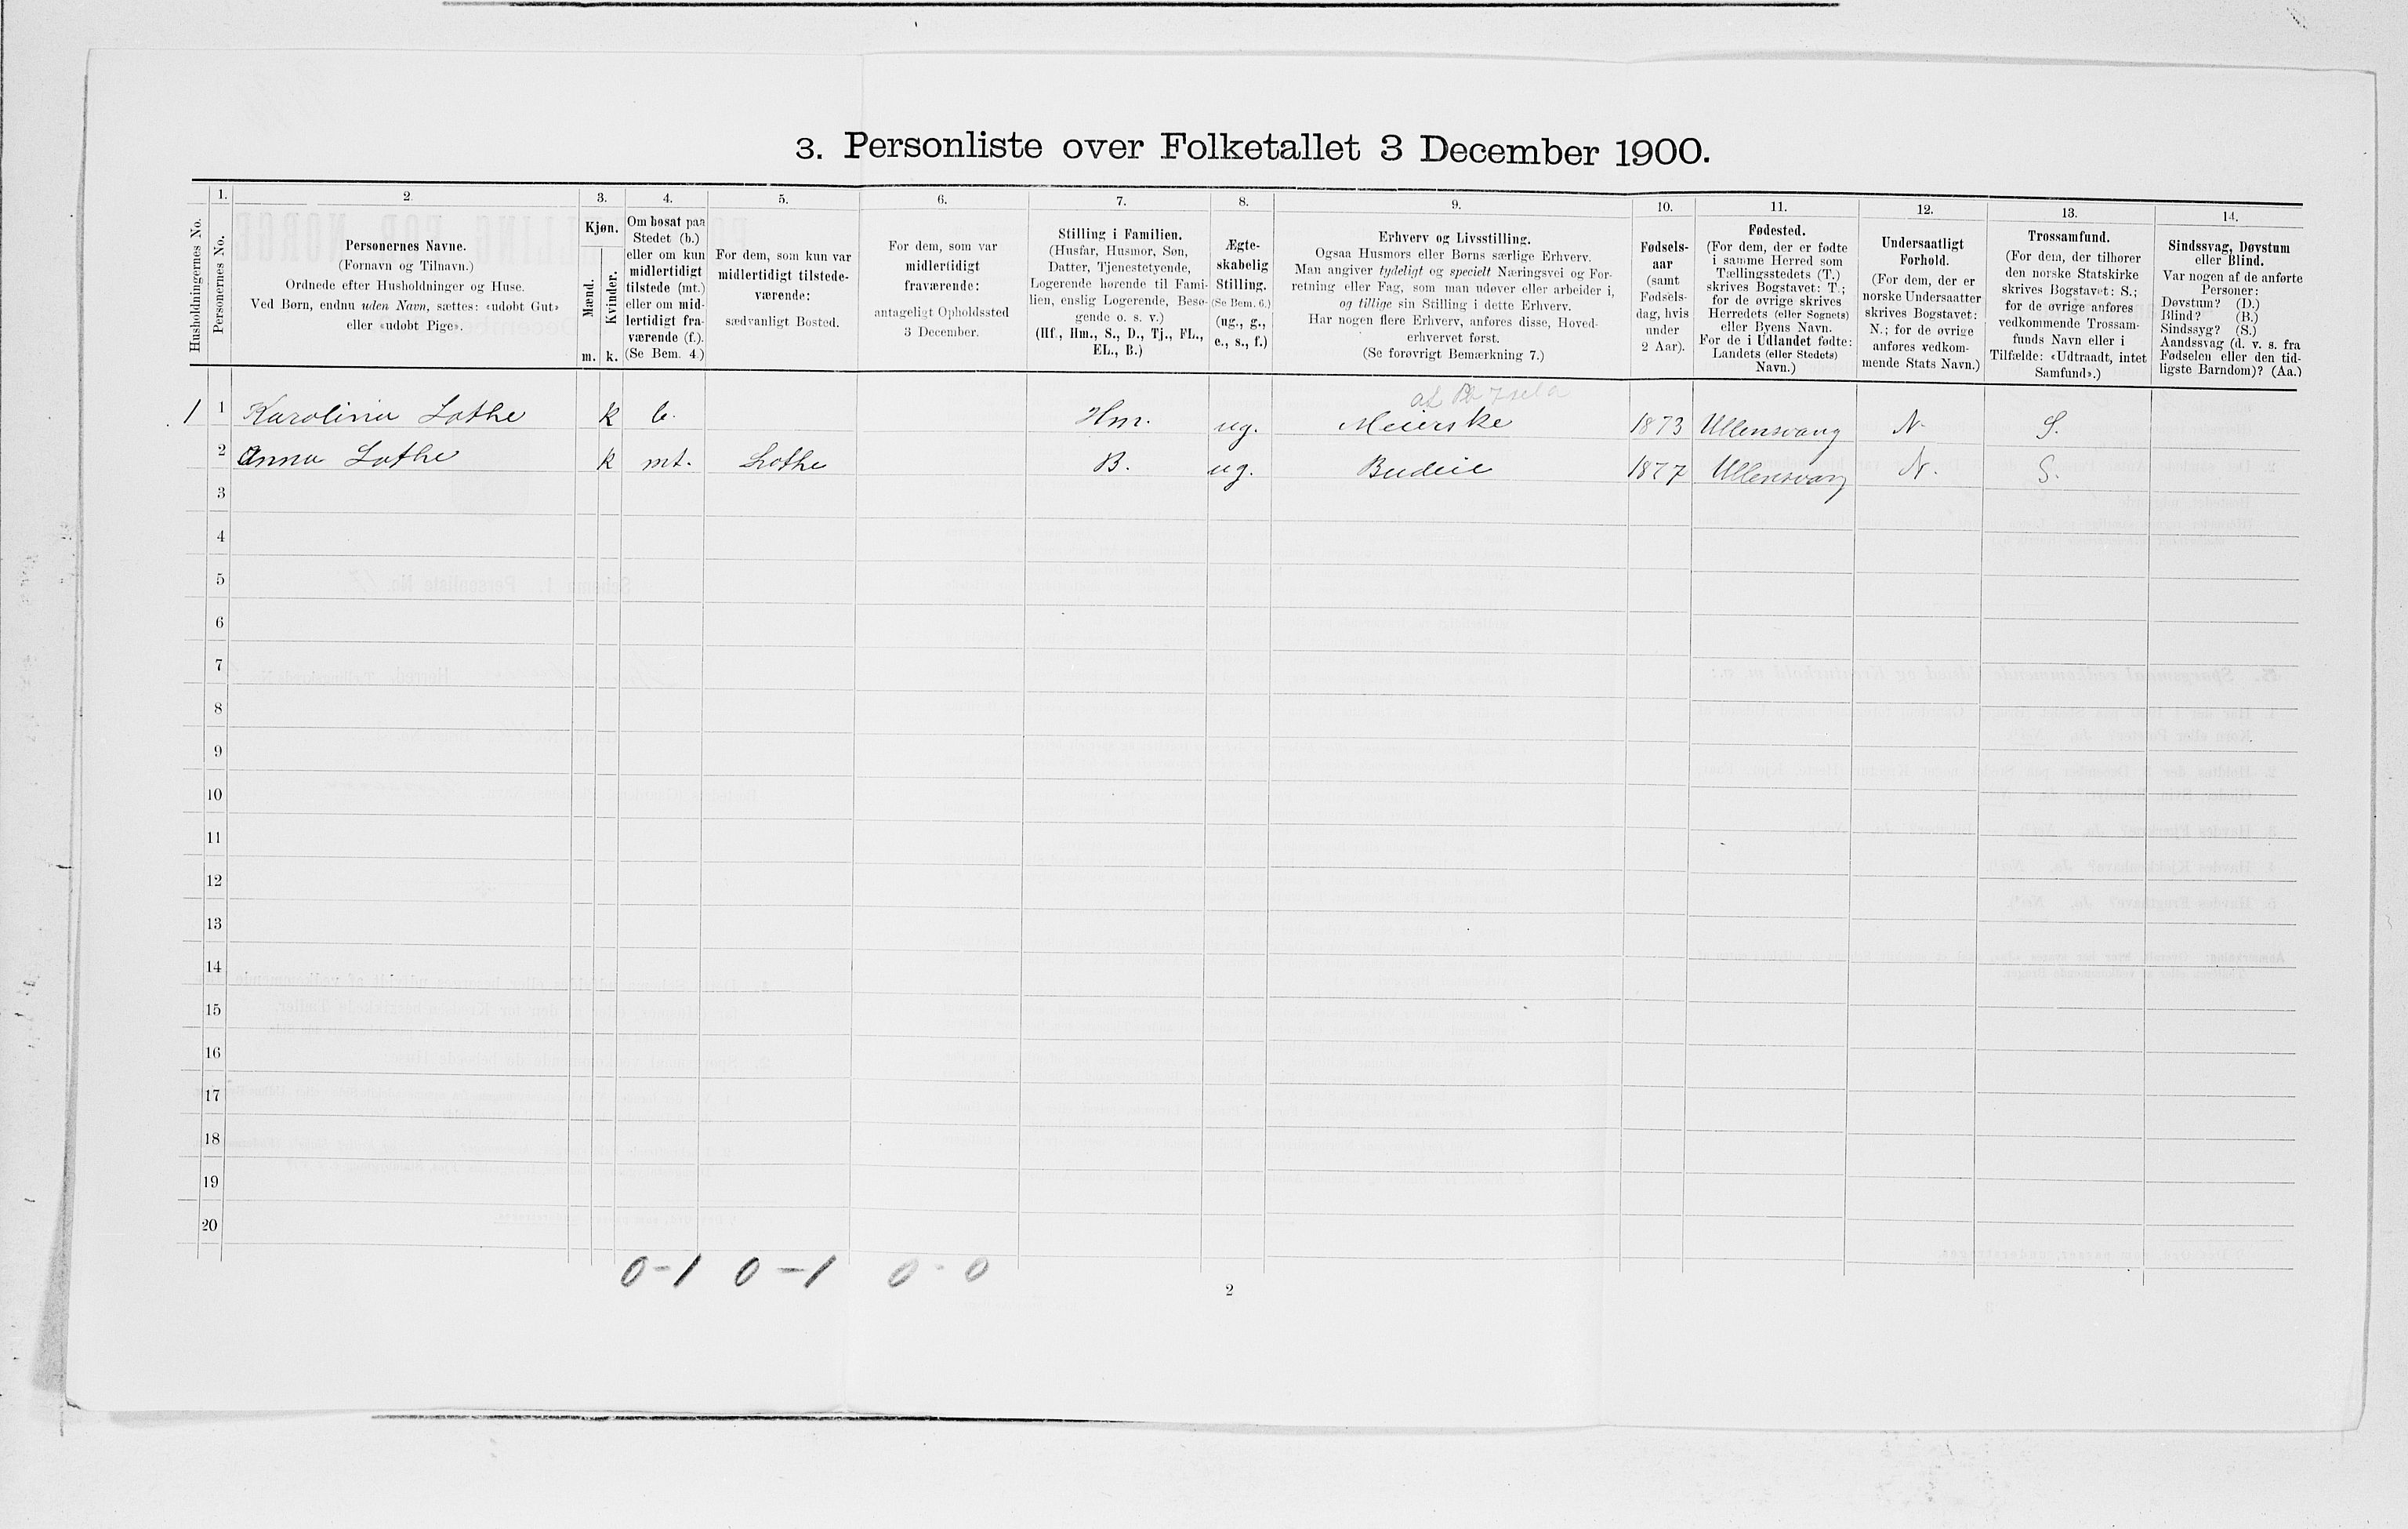 3. Personliste over Folketallet 3 December 1900.
Husholdningernes No.
1.
Personernes No.
2.
Personernes Navne.
(Fornavn og Tilnavn.)
Ordnede efter Husholdninger og Huse.
Ved Børn, endnu uden Navn, sættes: «udøbt Gut»
eller «udøbt Pige».
3.
Kjøn.
Mænd.
Kvinder.
m. k.
4.
Om bosat paa
Stedet (b.)
eller om kun
midlertidigt
tilstede (mt.)
eller om mid-
lertidigt fra-
værende (f.).
(Se Bem. 4.)
5.
For dem, som kun var
midlertidigt tilstede-
værende:
sædvanligt Bosted.
6.
For dem, som var
midlertidigt
fraværende:
antageligt Opholdssted
3 December.
7.
Stilling i Familien.
(Husfar, Husmor, Søn,
Datter, Tjenestetyende,
Logerende hørende til Fami-
lien, enslig Logerende, Besø-
gende o. s. v.)
(Hf., Hm., S., D., Tj., FL.,
EL., B.)
8.
Ægte-
skabelig
Stilling.
(Se Bem. 6.)
(ug., g.,
e., s., f.)
9.
Erhverv og Livsstilling.
Ogsaa Husmors eller Børns særlige Erhverv.
Man angiver tydeligt og specielt Næringsvei og For-
retning eller Fag, som man udøver eller arbeider i,
og tillige sin Stilling i dette Erhverv.
Har nogen flere Erhverv, anføres disse, Hoved-
erhvervet først.
(Se forøvrigt Bemærkning 7.)
10.
Fødsels-
aar
(samt
Fødsels-
dag, hvis
under
2 Aar).
11.
Fødested.
(For dem, der er fødte
i samme Herred som
Tællingsstedets (T.)
skrives Bogstavet: T.;
for de øvrige skrives
Herredets (eller Sognets)
eller Byens Navn.
For de i Udlandet fødte:
Landets (eller Stedets)
Navn.)
12.
Undersaatligt
Forhold.
(For dem, der er
norske Undersaatter
skrives Bogstavet:
N.; for de øvrige
anføres vedkom-
mende Stats Navn.)
13.
Trossamfund.
(For dem, der tilhører
den norske Statskirke
skrives Bogstavet: S.;
for de øvrige anføres
vedkommende Trossam-
funds Navn eller i
Tilfælde: «Udtraadt, intet
Samfund».)
14.
Sindssvag, Døvstum
eller Blind.
Var nogen af de anførte
Personer:
Døvstum? (D.)
Blind? (B.)
Sindssyg? (S.)
Aandssvag (d. v. s. fra
Fødselen eller den tid-
ligste Barndom)? (Aa.)
1 1 Karolina Lothe k b. Hm. ug. Meierske 1873 Ullensvang N. S.
2 Anna Lothe k mt. Lothe B. ug. Budeie 1877 Ullensvang N. S.
3
4
5
6
7
8
9
10
11
12
13
14
15
16
17
18
19
20
0-1 0-1 0-0
2